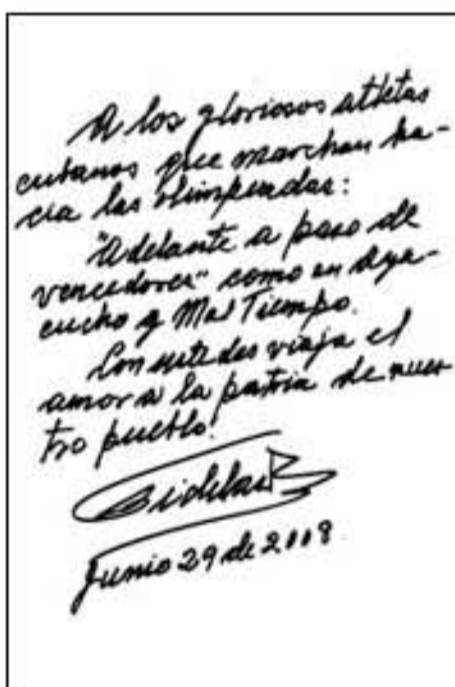 A los gloriosos atletas
cubanos que marchan ha-
cia las olimpiadas:
"Adelante a paso de
vencedores" como en Aya-
cucho y Mal Tiempo.
Con ustedes viaja el
amor a la patria de nues
tro pueblo.
Junio 29 de 2008